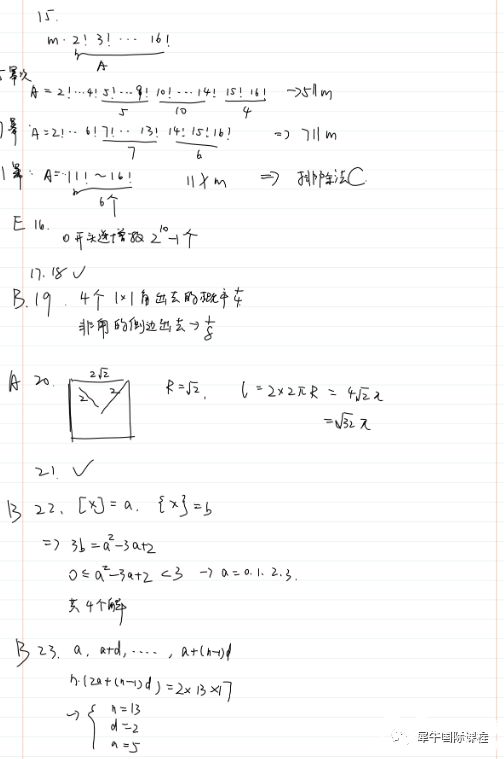 15.
m · 2! 3! ⋯ 16!
A
幂次
A = 2!⋯4! 5!⋯9! 10!⋯14! 15! 16! → 5||m
5 10 4
A = 2!⋯6! 7!⋯13! 14! 15! 16! ⇒ 7||m
7 6
A = 11! ~ 16! 11∤m ⇒ 排除法C
6个
E 16.
0开头递增数 2^10-1个
17.18 ✓
B. 19. 4个1×1角出去的概率1/4
非角的侧边出去 → 1/8
A 20. 2√2
2 2
R=√2. l = 2×2πR = 4√2π
=√32 π
21. ✓
B 22. [x]=a. {x}=b
⇒ 3b=a²-3a+2
0≤a²-3a+2<3 → a=0.1.2.3.
共4个解
B 23. a, a+d, ⋯⋯, a+(n-1)d
n·(2a+(n-1)d)=2×13×17
→ { n=13
d=2
a=5
犀牛国际课程